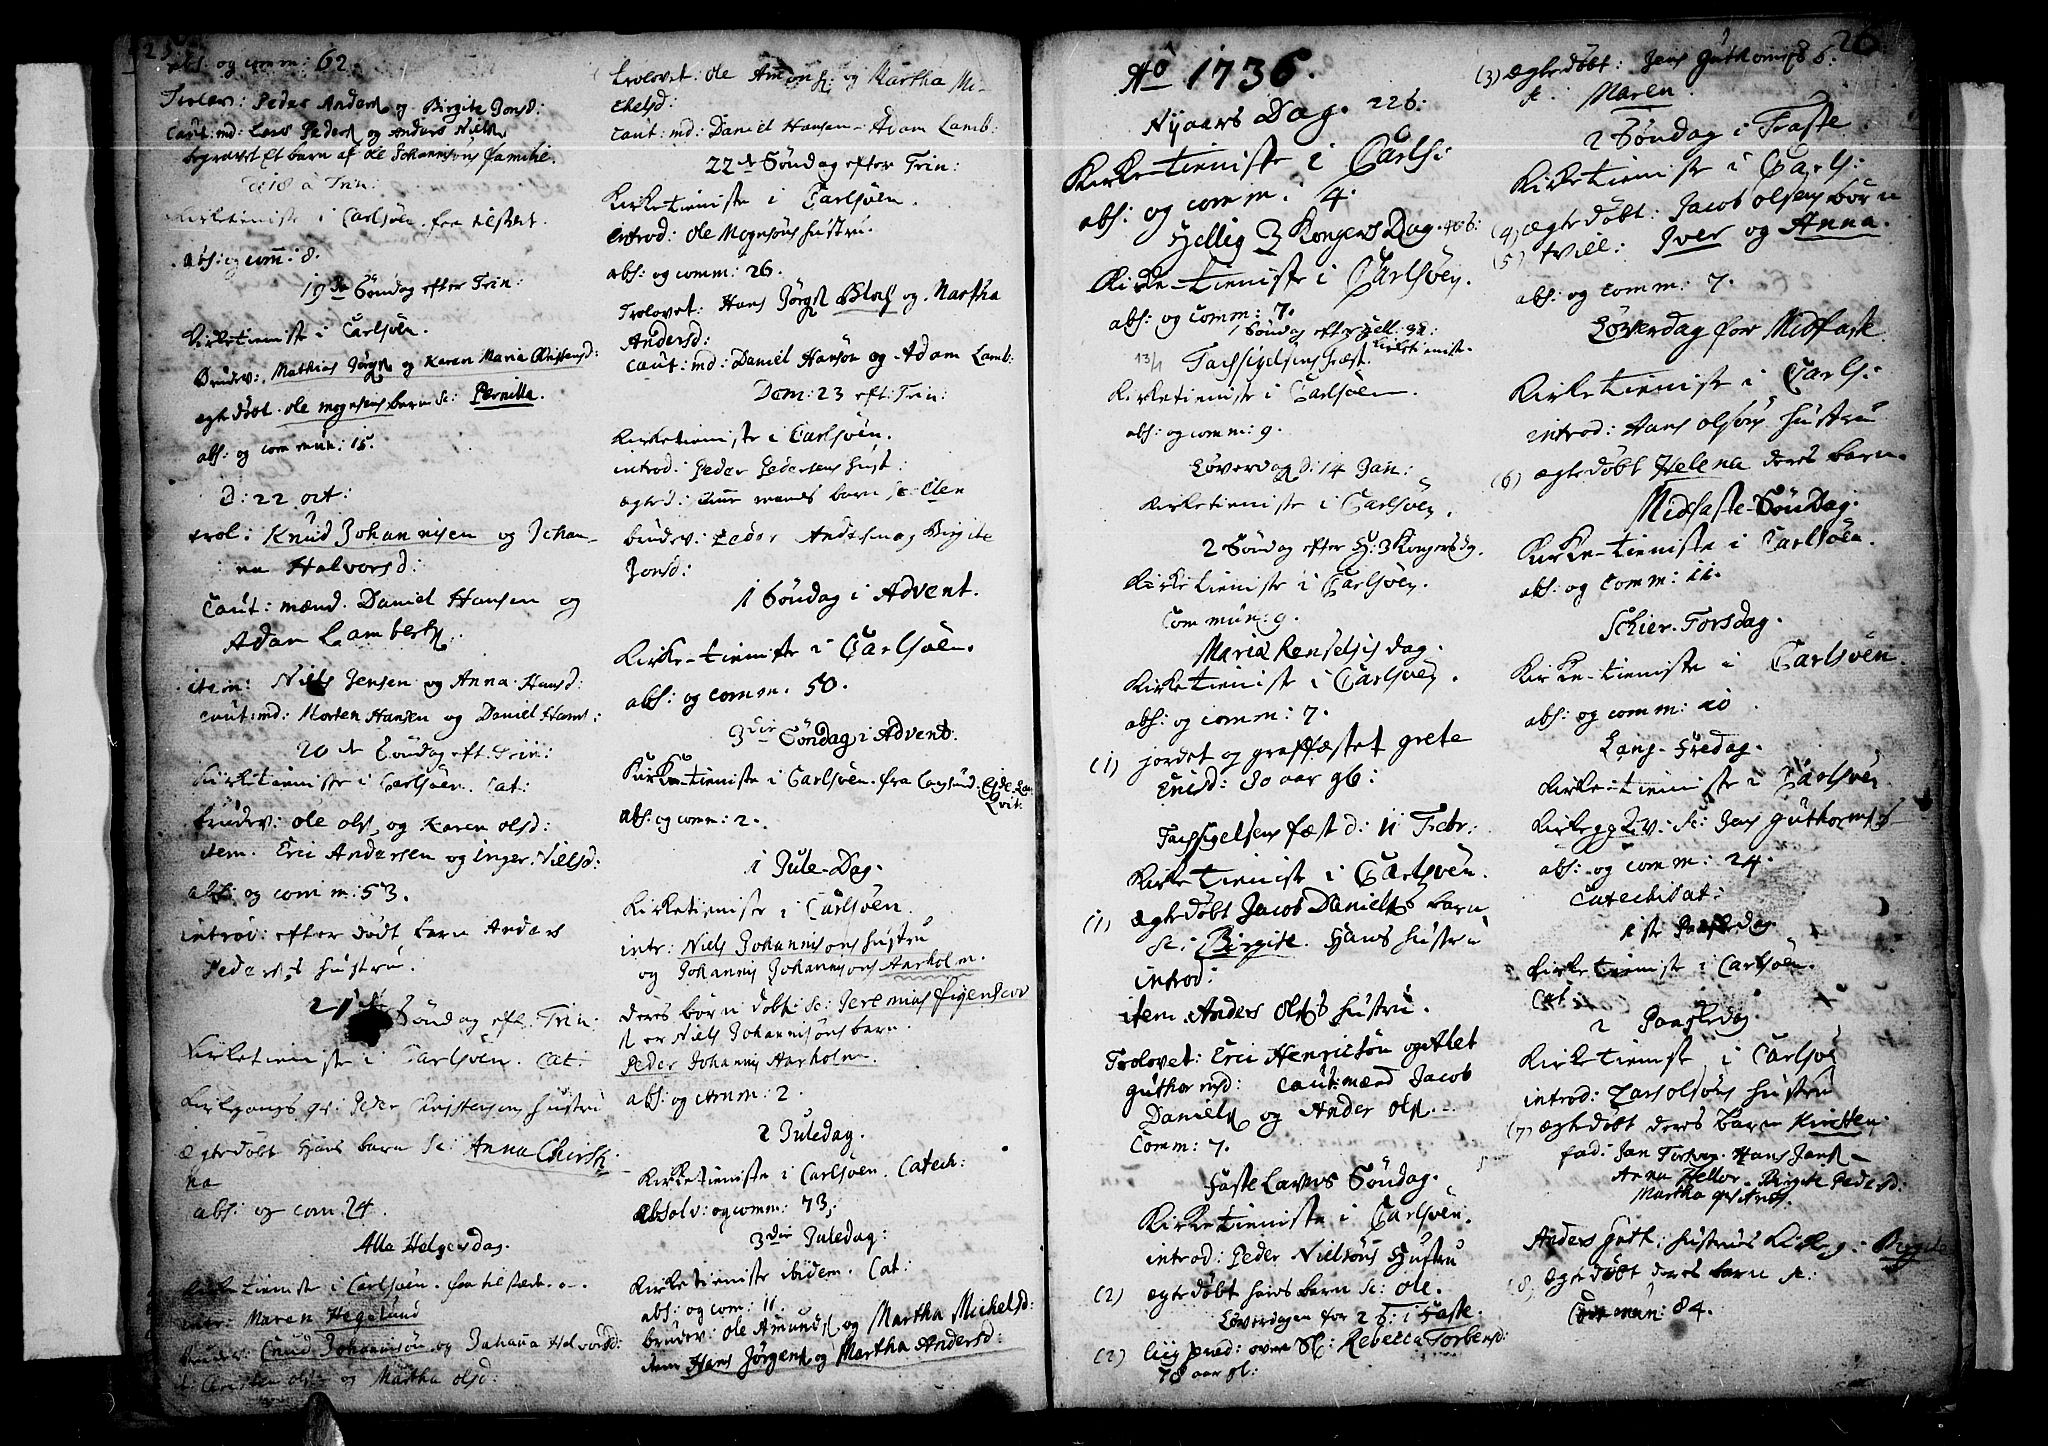 abs: og comm: 62.
Trolov: Peder Anders og Birgite Jonsd:
Caut: md: Lars Peders og Anders Niels
begravet et barn af ole Johannisøns familie.
a Trin:
Kirketieniste i Carlsøen.
abs: og com: 8.
19de Søndag efter Trin:
Kirketieniste i Carlsøen.
Brudev: Mathias Jørgs og Karen Maria Christensd:
egte døbt ole mognsens barn sc: Pernilla.
abs: og commun: 15.
D: 22 oct:
trol: Knud Johannisen og Johan-
na Halvorsd:
Caut: mænd. Daniel Hansen og
Adam Lamberts.
item: Niels Jensen og Anna Hansd:
caut: md: Morten Hansen og Daniel Hans:
20de Søndag eft. Trin:
Kirketieniste i Carlsøen. Cat:
brudev: ole ols, og Karen olsd:
item. Eric Andersen og Inger Nielsd:
abs: og comm: 53.
introd: efter dødt barn Anders
Peders hustru.
21de Søndag eft. Trin:
Kirketieniste i Carlsøen. Cat:
Kirkegangs qv: Peder Christensens hustru
ægte døbt hans barn sc: Anna Chirsti-
na
abs: og com: 24.
Alle Helgensdag.
Kirketieniste i Carlsøen.
intr: Maren Hegelund
Brudev: Cnud Johannisøn og Johanna Halvorsd:
Christen ols og Martha olsd:
trolovet: ole Amons: og Martha Mi-
chelsd:
Caut: md: Daniel Hansen Adam Lamb:
22de Søndag efter Trin:
Kirketieniste i Carlsøen.
introd: ole Mognsøns hustru.
abs: og comm: 26.
Trolovet: Hans Jørgs Bloch og Martha
Andersd:
Caut: md: Daniel Hansøn og Adam Lamb:
Dom: 23 eft: Trin:
Kirketieniste i Carlsøen.
introd: Peder Pedersens hust:
ægted: mands barn sc: Elen
brudev: Peder Anders og Birgite
Jonsd:
1 Søndag i Advent.
Kirke-tieniste i Carlsøen.
abs: og comm. 50.
3die Søndag i Advent.
Kirke-tieniste i Carlsøen. fra Langsund
abs: og comm: 2.
1 Jule-Dag.
Kirketieniste i Carlsøen.
intr: Niels Johannisøns hustru
og Johannis Johannisøns Aarholm.
deres børn døbt sc: Jeremias
er Niels Johannisøns barn.
Peder Johannis Aarholm.
abs: og comm: 2.
2 Juledag.
Kirketieniste i Carlsøen. Catech:
Absolv: og comm: 73.
3die Juledag:
Kirketieniste ibidem. Cat:
abs: og com: 11.
brudev: ole Amunds og Martha Michelsd:
item Hans Jørgens og Martha Andersd:
Ao 1736.
Nyaars Dag. 226:
Kirke-tieniste i Carls:
abs: og comm: 4.
Hellig 3 Kongers Dag.
Kirke-tieniste i Carlsøen.
abs: og comm: 7.
1 Søndag efter Hell: 3K:
13/1 Tachsigelsens fæst Kirketienist.
Kirketieniste i Carlsøen.
abs: og comm: 9.
Løverdag D: 14 Jan:
Kirketieniste i Carlsøen.
2 Søndag efter H: 3 Kongersdg.
Kirketieniste i Carlsøen.
Commun: 9.
Mariæ Renselsis dag.
Kirketieniste i Carlsøen.
abs: og comm: 7.
(1) jordet og graffæstet grete
Ericd: 80 aar gb:
Tachsigelsens fæst d: 11 Febr:
Kirketieniste i Carlsøen.
(1) ægte døbt Jacob Daniels barn
sc: Birgite. Hans hustru
introd:
item. Anders ols hustru.
Trolovet: Eric Henricsøn og Alet
Guthormsd: Caut: mænd Jacob
Daniels og Ander ols.
Comm: 7.
Faste Lavns Søndag.
Kirketieniste i Carlsøen.
introd: Peder Nielsøns Hustru
(2) ægte døbt hans barn sc: ole.
Løverdagen for 2 S: i Faste.
(2) liig pred: over Sl: Rebecca Torbensd:
78 aar gl:
26
(3) ægte døbt: Jens Guthormss b:
sc: Maren.
2 Søndag i Faste.
Kirketieniste i Carls:
(4) ægte døbt: Jacob olsens børn
(5) tvill: Iver og Anna.
abs: og comm: 7.
Løverdag for Midfaste
Kirketieniste i Carls:
introd: Hans olsøns hustru
(6) ægte døbt Helena deres barn.
Midfaste-Søndag.
Kirke-tieniste i Carlsøen.
abs: og comm: 11.
Schier-Torsdag.
Kirke-tieniste i Carlsøen.
abs: og comm: 10.
Lang-Fredag.
Kirke-tieniste i Carlsøen
Kirkegg qv: sc: Jens Guthorms
abs: og comm: 24.
Catechisat:
1ste Paaskedag
Kirketieniste i Carlsøen.
Cat
2 Paaskedag
Kirketieniste i Carlsøe
introd: Lars olsøns hustru
(7) ægte døbt deres barn Kirsten.
fad: Jan Hans Jans
Anna Birgite Pedersd:
Martha
Anders Guth: hustrues Kirkeg: Birgite
8. ægte døbt deres barn sc:
Commun: 84.